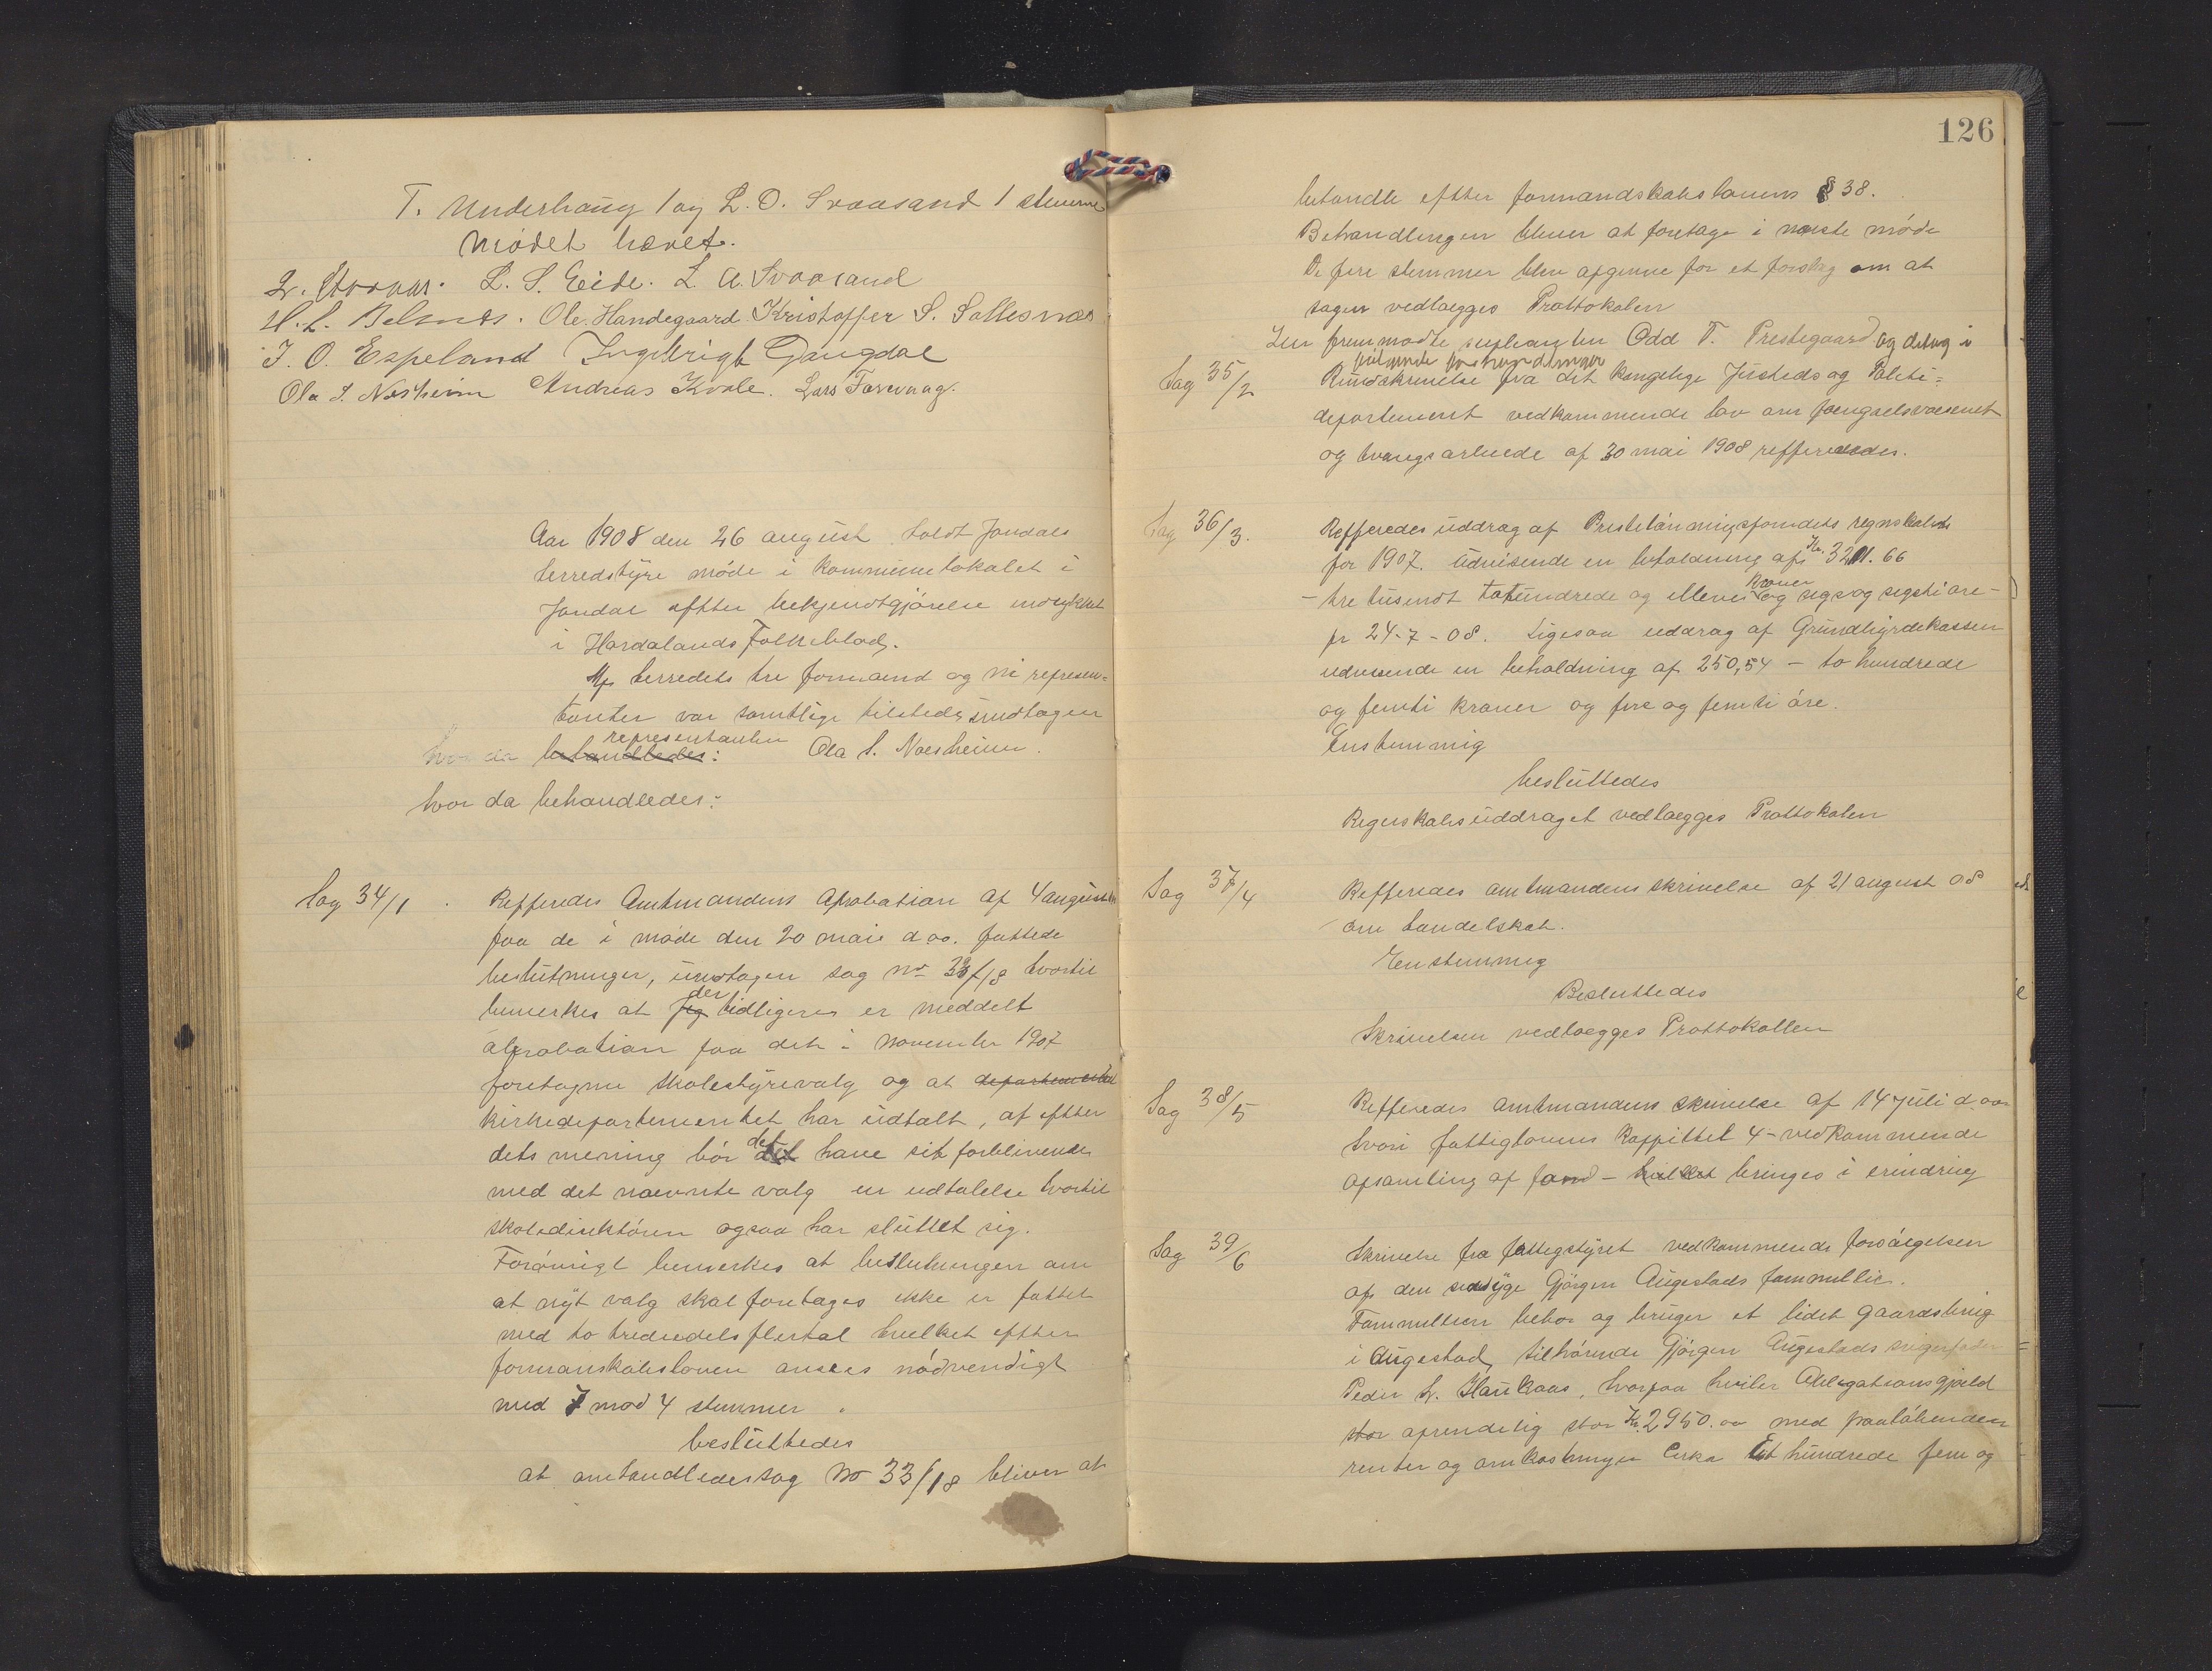 T. Underhaug 1 og L. O. Svaasand 1 stemme
Mødet hævet.
L. S. Eide. L. A. Svaasand
Ole Handegaard Kristoffer S. Sallesnæs
J. O. Espeland Ingebrigt Gaugdal
Ola S. Næsheim Andreas Kvale. Lars
Aar 1908 den 26 august holdt Jondals
herredstyre møde i kommunelokalet i
Jondal efter bekjendtgjørelse indrykket
i Hardalands Folkeblad.
Af herredets tre formænd og ni represen=
tanter var samtlige tilstede, undtagen
representanten
hvor da behandledes: Ola S. Næsheim.
hvor da behandledes:
Sag 34/1 Refferedes Amtmandens Aprobation af 4 august
paa de i møde den 20 mai d aa. fattede
beslutninger, undtagen sag no 33/18 hvortil
der
bemerkes at jeg tidligere er meddelt
aprobation paa det i november 1907
foretagne skolestyrevalg og at departementet
kirkedepartementet har udtalt, af efter
det
dets mening bør det have sit forblivende
med det nævnte valg en udtalelse hvortil
skoledirektøren ogsaa har sluttet sig.
Forøvrigt bemerkes at beslutningen om
at nyt valg skal foretages ikke er fattet
med to trediedels flertal hvilket efter
formanskabsloven ansees nødvendigt
med 7 mod 4 stemmer
besluttedes
at omhandledes sag No 33/18 bliver at
126
behandle efter formandskabslovens § 38.
Behandlingen bliver at foretage i næste møde
De fire stemmer blev afgivne for et forslag om at
sagen vedlægges Prottokolen
Her fremmødte suplianten Odd T. Prestegaard og deltog i
følgende forhandlinger
Sag 35/2 Rundskrivelse fra det kongelige Justeds og Politi=
departement vedkommende lov om fængselsvæsenet
og tvangsarbeide af 30 mai 1908 refferedes.
Sag 36/3. Refferedes uddrag af Prestelønningsfondets regnskab
for 1907. Udvisende en beholdning af Kr. 3211.66
Kroner
- tre tusendt tohundrede og elleve og segs og segsti øre -
pr 24-7-08. Ligesaa uddrag af Grundbyrdekassen
udvisende en beholdning af 250,54 - to hundrede
og femti kroner og fire og femti øre.
Enstemmig
besluttedes
Regnskabsuddraget vedlægges Prottokolen
Sag 37/4 Refferedes amtmandens skrivelse af 21 august 08
om handelskat.
Enstemmig
Besluttedes
Skrivelsen vedlægges Prottokollen
Sag 38/5 Refferedes amtmandens skrivelse af 14 juli d. aa
hvori fattiglovens kappittel 4 - vedkommende
opsamling af fond - hvilket bringes i erindring
Sag 39/6 Skrivelse fra fattigstyret vedkommende forsørgelsen
af den sindsyge Gjørgen Augestads fammillie.
Fammilien bebor og bruger et lidet gaardsbrug
i Augestad, tilhørende Gjørgen Augestads svigerfader
Peder L. Haukaas, hvorpaa hviler Obligationsgjæld
stor oprindelig stor Kr. 2950.00 med paaløbende
renter og omkostninger Cirka Et hundrede fem og